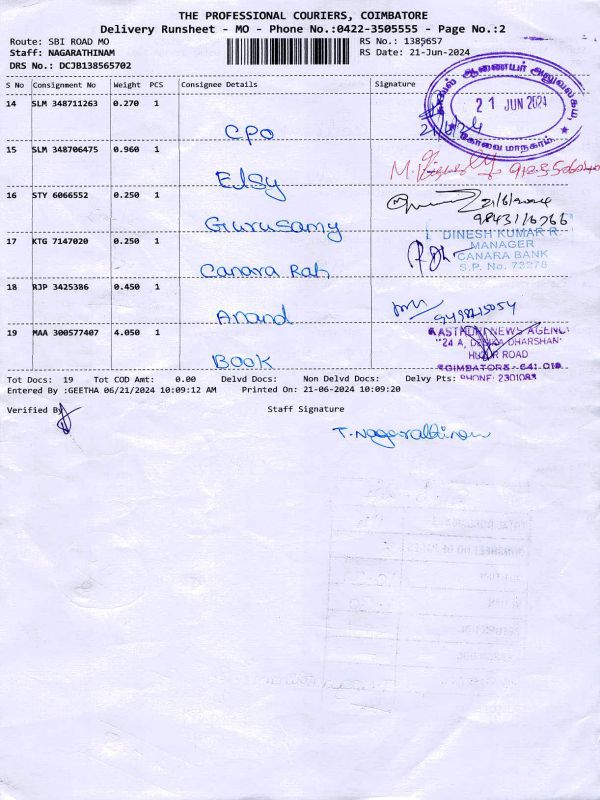 THE PROFESSIONAL COURIERS, COIMBATORE
Delivery Runsheet - MO - Phone No.:0422-3505555 - Page No.:2
Route: SBI ROAD MO RS No.: 1385657
Staff: NAGARATHINAM RS Date: 21-Jun-2024
DRS No.: DCJB138565702
S No Consignment No Weight PCS Consignee Details Signature
காவல் ஆணையர் அலுவலகம்
21 JUN 2024
கோவை மாநகரம்
14 SLM 348711263 0.270 1
CPO 21/6/24
15 SLM 348706475 0.960 1
Elsy
16 STY 6066552 0.250 1 21/6/2024
Gurusamy 98431
17 KTG 7147020 0.250 1 DINESH KUMAR R.
MANAGER
Canara Rah CANARA BANK
S.P. No. 73278
18 RJP 3425386 0.450 1
Anand
19 MAA 300577407 4.050 1 KASTHURI NEWS AGENCY
"24 A, DEVIKA DHARSHAN"
HUZUR ROAD
Book COIMBATORE - 641 018.
Tot Docs: 19 Tot COD Amt: 0.00 Delvd Docs: Non Delvd Docs: Delvy Pts: PHONE: 2301083
Entered By :GEETHA 06/21/2024 10:09:12 AM Printed On: 21-06-2024 10:09:20
Verified By Staff Signature